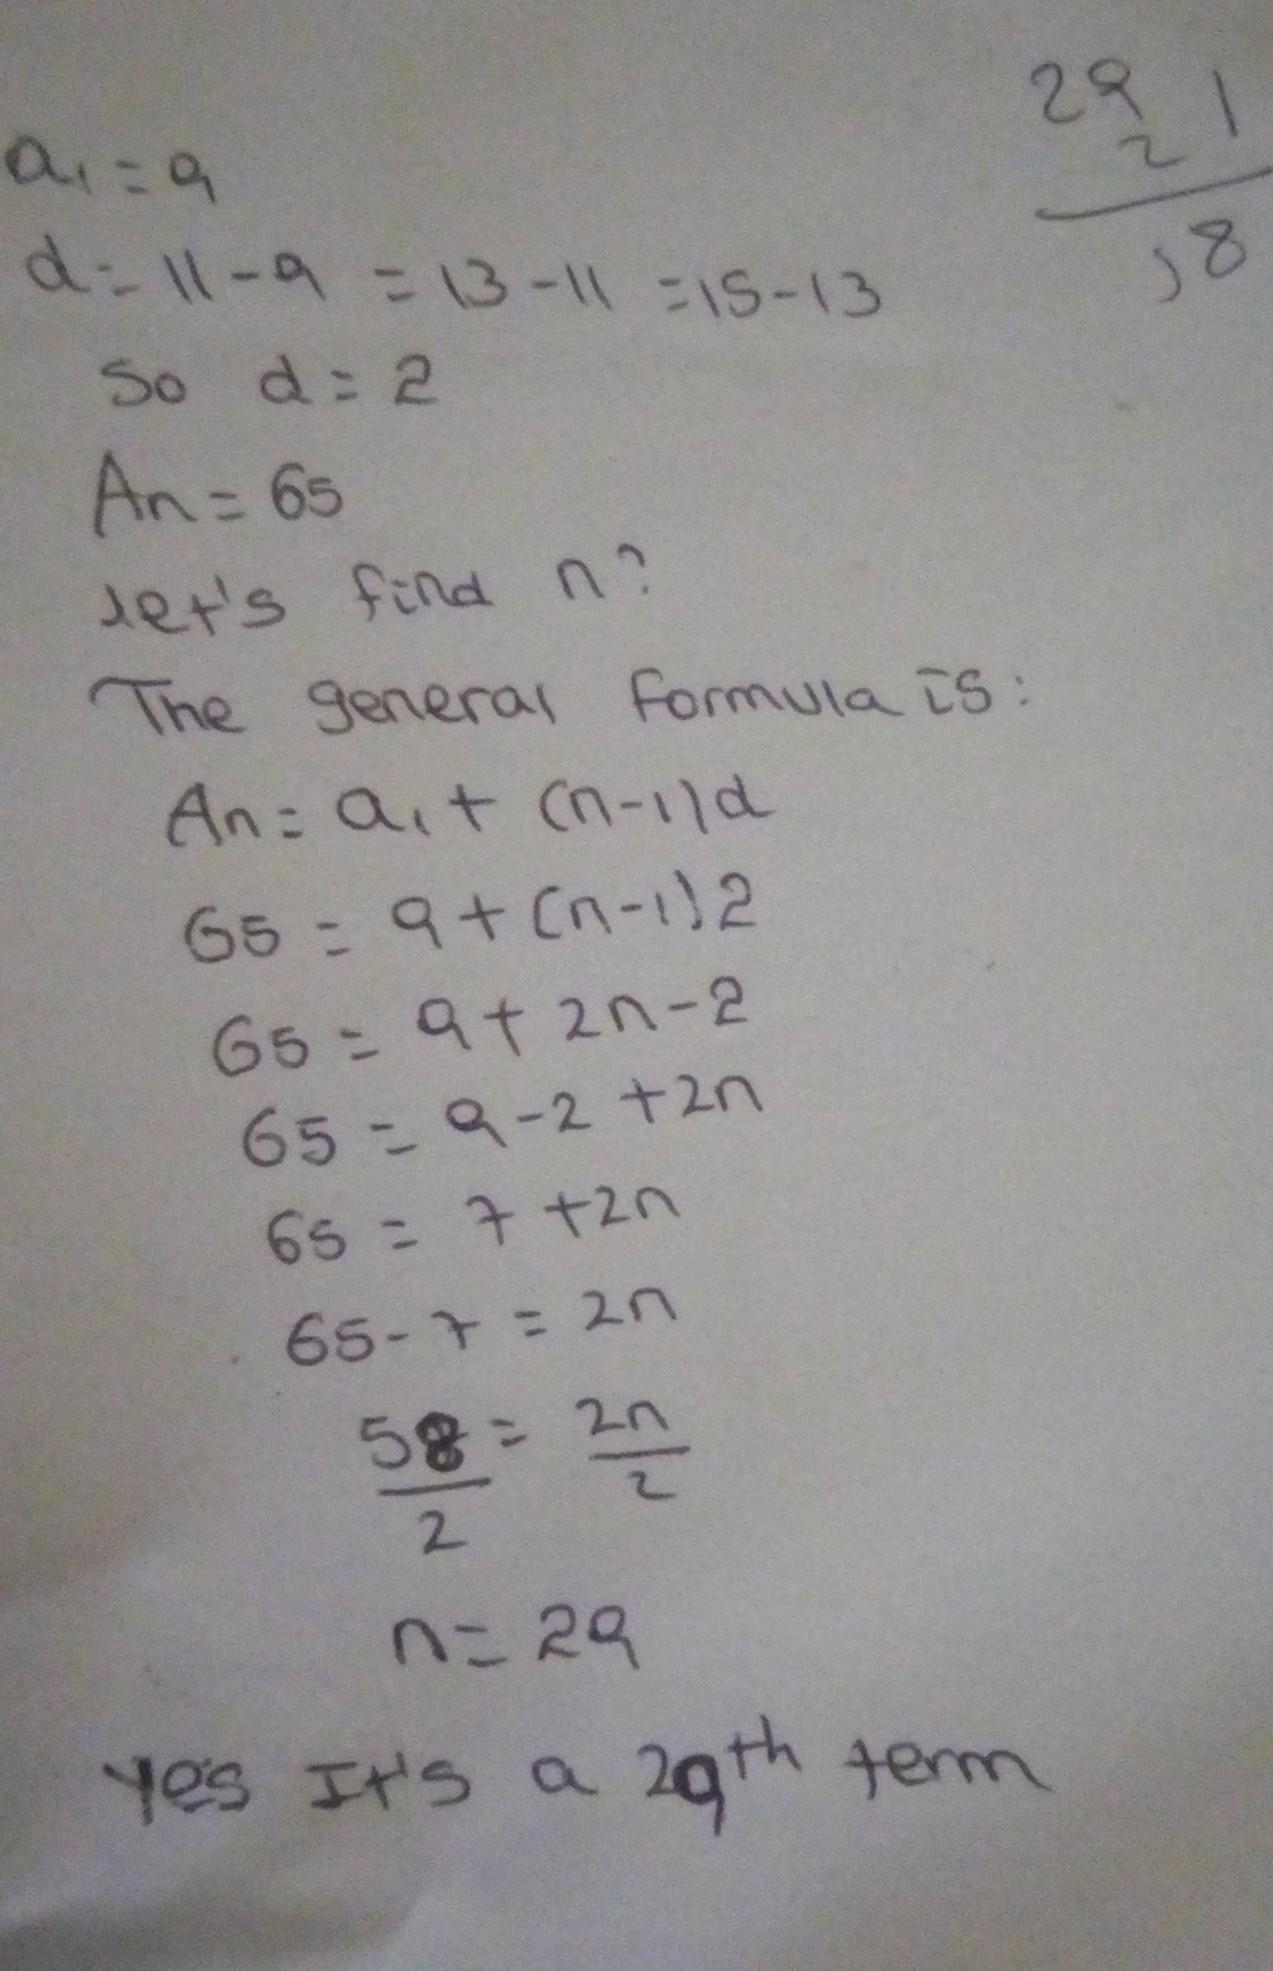 29 1
2
58
a₁ = 9
d = 11 - 9 = 13 - 11 = 15 - 13
So d = 2
An = 65
let's find n?
The general formula is:
An = a₁ + (n-1)d
65 = 9 + (n-1)2
65 = 9 + 2n - 2
65 = 9 - 2 + 2n
65 = 7 + 2n
65 - 7 = 2n
58/2 = 2n/2
n = 29
yes It's a 29th term